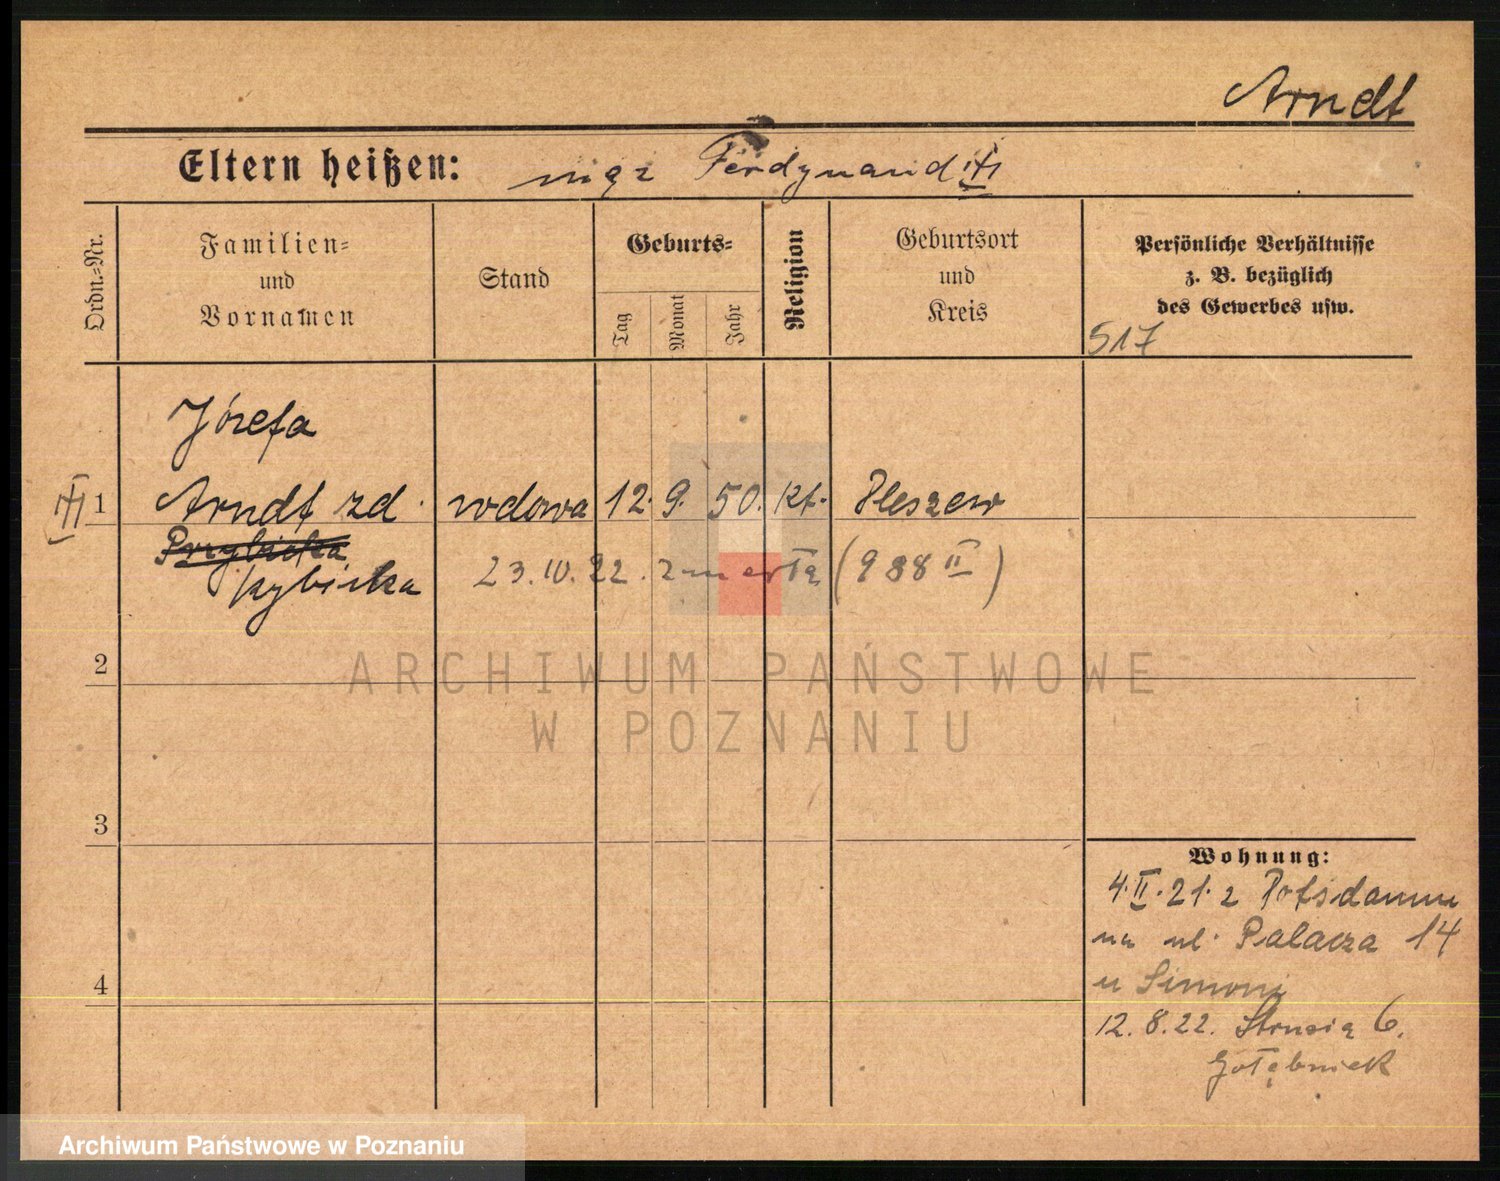 Arndt
Eltern heißen: mąż Ferdynand
Ordn.=Nr.
Familien=
und
Vornamen
Stand
Geburts=
Tag
Monat
Jahr
Religion
Geburtsort
und
Kreis
Persönliche Verhältnisse
z. B. bezüglich
des Gewerbes usw.
517
Józefa
1 Arndt zd. wdowa 12. 9. 50. kt. Pleszew
Przybicka
23. 10. 22. zmarła (988 II)
2
ARCHIWUM PAŃSTWOWE
W POZNANIU
3
Wohnung:
4. II. 21. z Potsdammu
na ul. Palacza 14
4 u Simoni
12. 8. 22. Strusia 6.
Gołębniek
Archiwum Państwowe w Poznaniu